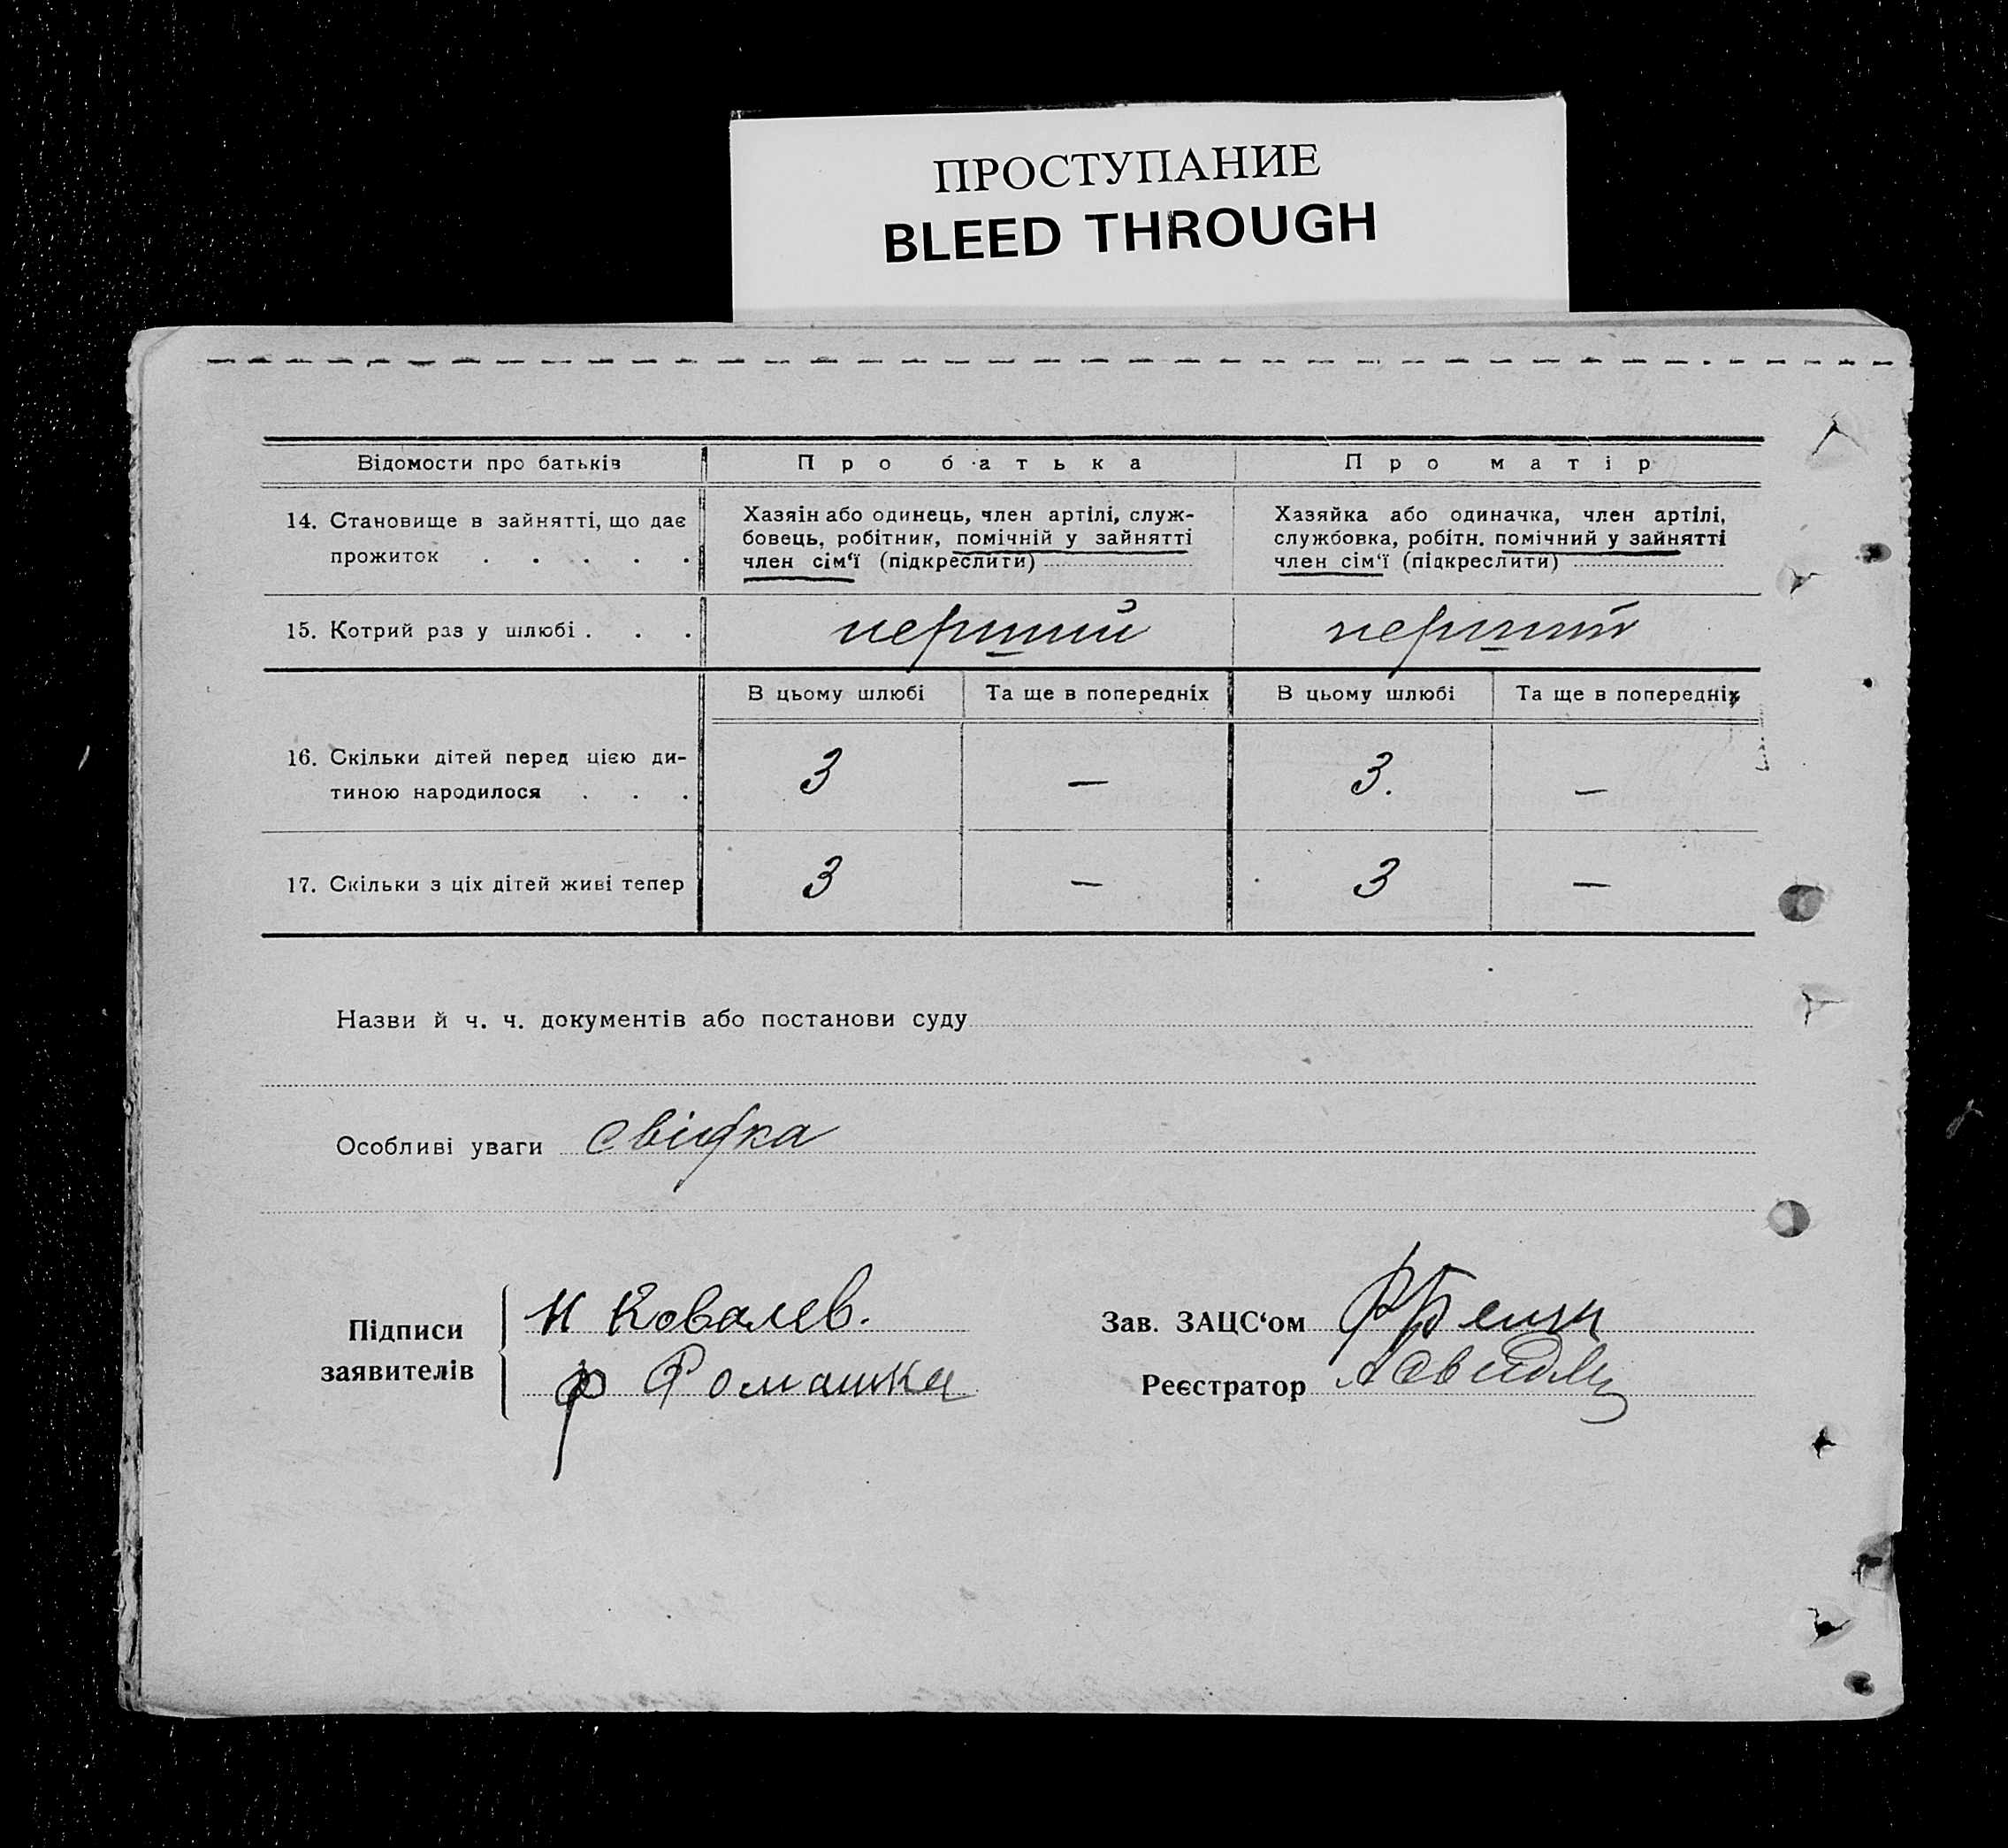 ПРОСТУПАНИЕ
BLEED THROUGH
Відомости про батьків
Про батька
Про матір
14. Становище в зайнятті, що дає
прожиток . . . . .
Хазяін або одинець, член артілі, служ-
бовець, робітник, помічній у зайнятті
член сім‘ї (підкреслити)
Хазяйка або одиначка, член артілі,
службовка, робітн. помічний у зайнятті
член сім‘ї (підкреслити)
15. Котрий раз у шлюбі . . .
перший
перший
В цьому шлюбі
Та ще в попередніх
В цьому шлюбі
Та ще в попередніх
16. Скільки дітей перед цією ди-
тиною народилося . . .
3
—
3.
—
17. Скільки з ціх дітей живі тепер
3
—
3
—
Назви й ч. ч. документів або постанови суду
Особливі уваги свідка
Підписи
заявителів
Н Ковалев.
Ф Ромашка
Зав. ЗАЦС‘ом
Реєстратор